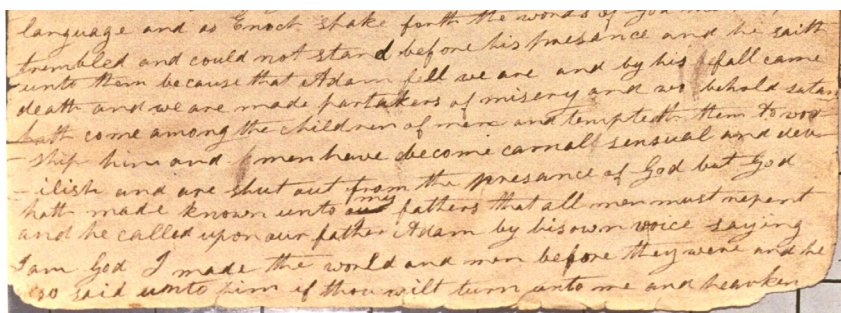 language and as Enoch spake forth the words of God
trembled and could not stand before his presance and he saith
unto them because that Adam fell we are and by his fall came
death and we are made partakers of misery and wo behold satan
hath come among the children of men and tempteth them to wor
- ship him and men have become carnal sensual and dev-
- ilish and are shut out from the presance of God but God
hath made known unto my fathers that all men must repent
and he called upon our father Adam by his own voice saying
I am God I made the world and men before they were and he
so said unto him if thou wilt turn unto me and hearken